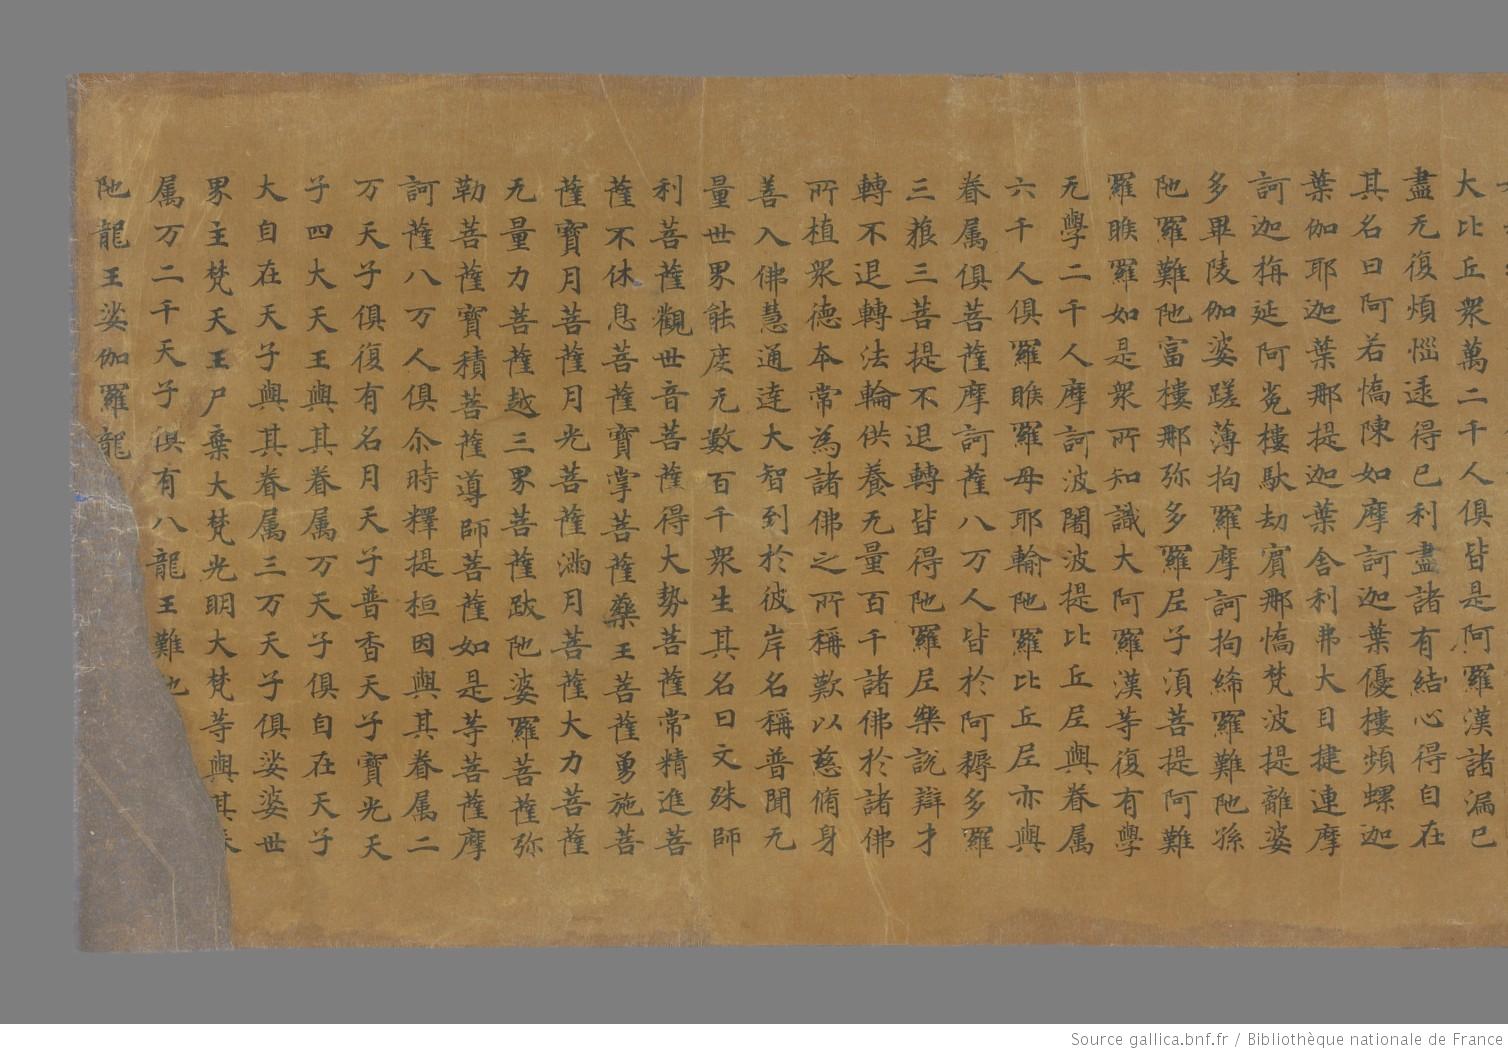 大比丘衆萬二千人俱皆是阿羅漢諸漏已
盡无復煩惱逮得已利盡諸有結心得自在
其名曰阿若憍陳如摩訶迦葉優樓頻螺迦
葉伽耶迦葉那提迦葉舍利弗大目揵連摩
訶迦栴延阿㝹樓馱劫賔那憍梵波提離婆
多畢陵伽婆蹉薄拘羅摩訶拘絺羅難陁孫
陁羅難陁富樓那弥多羅𡰱子湏菩提阿難
羅睺羅如是衆所知識大阿羅漢等復有學
无學二千人摩訶波闍波提比丘𡰱與眷属
六千人俱羅睺羅母耶輸陁羅比丘𡰱亦與
眷属俱菩薩摩訶薩八万人皆於阿耨多羅
三藐三菩提不退轉皆得陁羅𡰱樂說辯才
轉不退轉法輪供養无量百千諸佛於諸佛
所植衆德本常為諸佛之所稱歎以慈脩身
善入佛慧通達大智到於彼岸名稱普聞无
量世界能度无數百千衆生其名曰文殊師
利菩薩觀世音菩薩得大勢菩薩常精進菩
薩不休息菩薩寳掌菩薩藥王菩薩勇施菩
薩寳月菩薩月光菩薩滿月菩薩大力菩薩
无量力菩薩越三界菩薩跋陁婆羅菩薩弥
勒菩薩寳積菩薩導師菩薩如是等菩薩摩
訶薩八万人俱尒時釋提桓因與其眷属二
万天子俱復有名月天子普香天子寳光天
子四大天王與其眷属万天子俱自在天子
大自在天子與其眷属三万天子俱娑婆世
界主梵天王尸棄大梵光明大梵等與其眷
属万二千天子俱有八龍王難陁
陁龍王娑伽羅龍
Source gallica.bnf.fr / Bibliothèque nationale de France